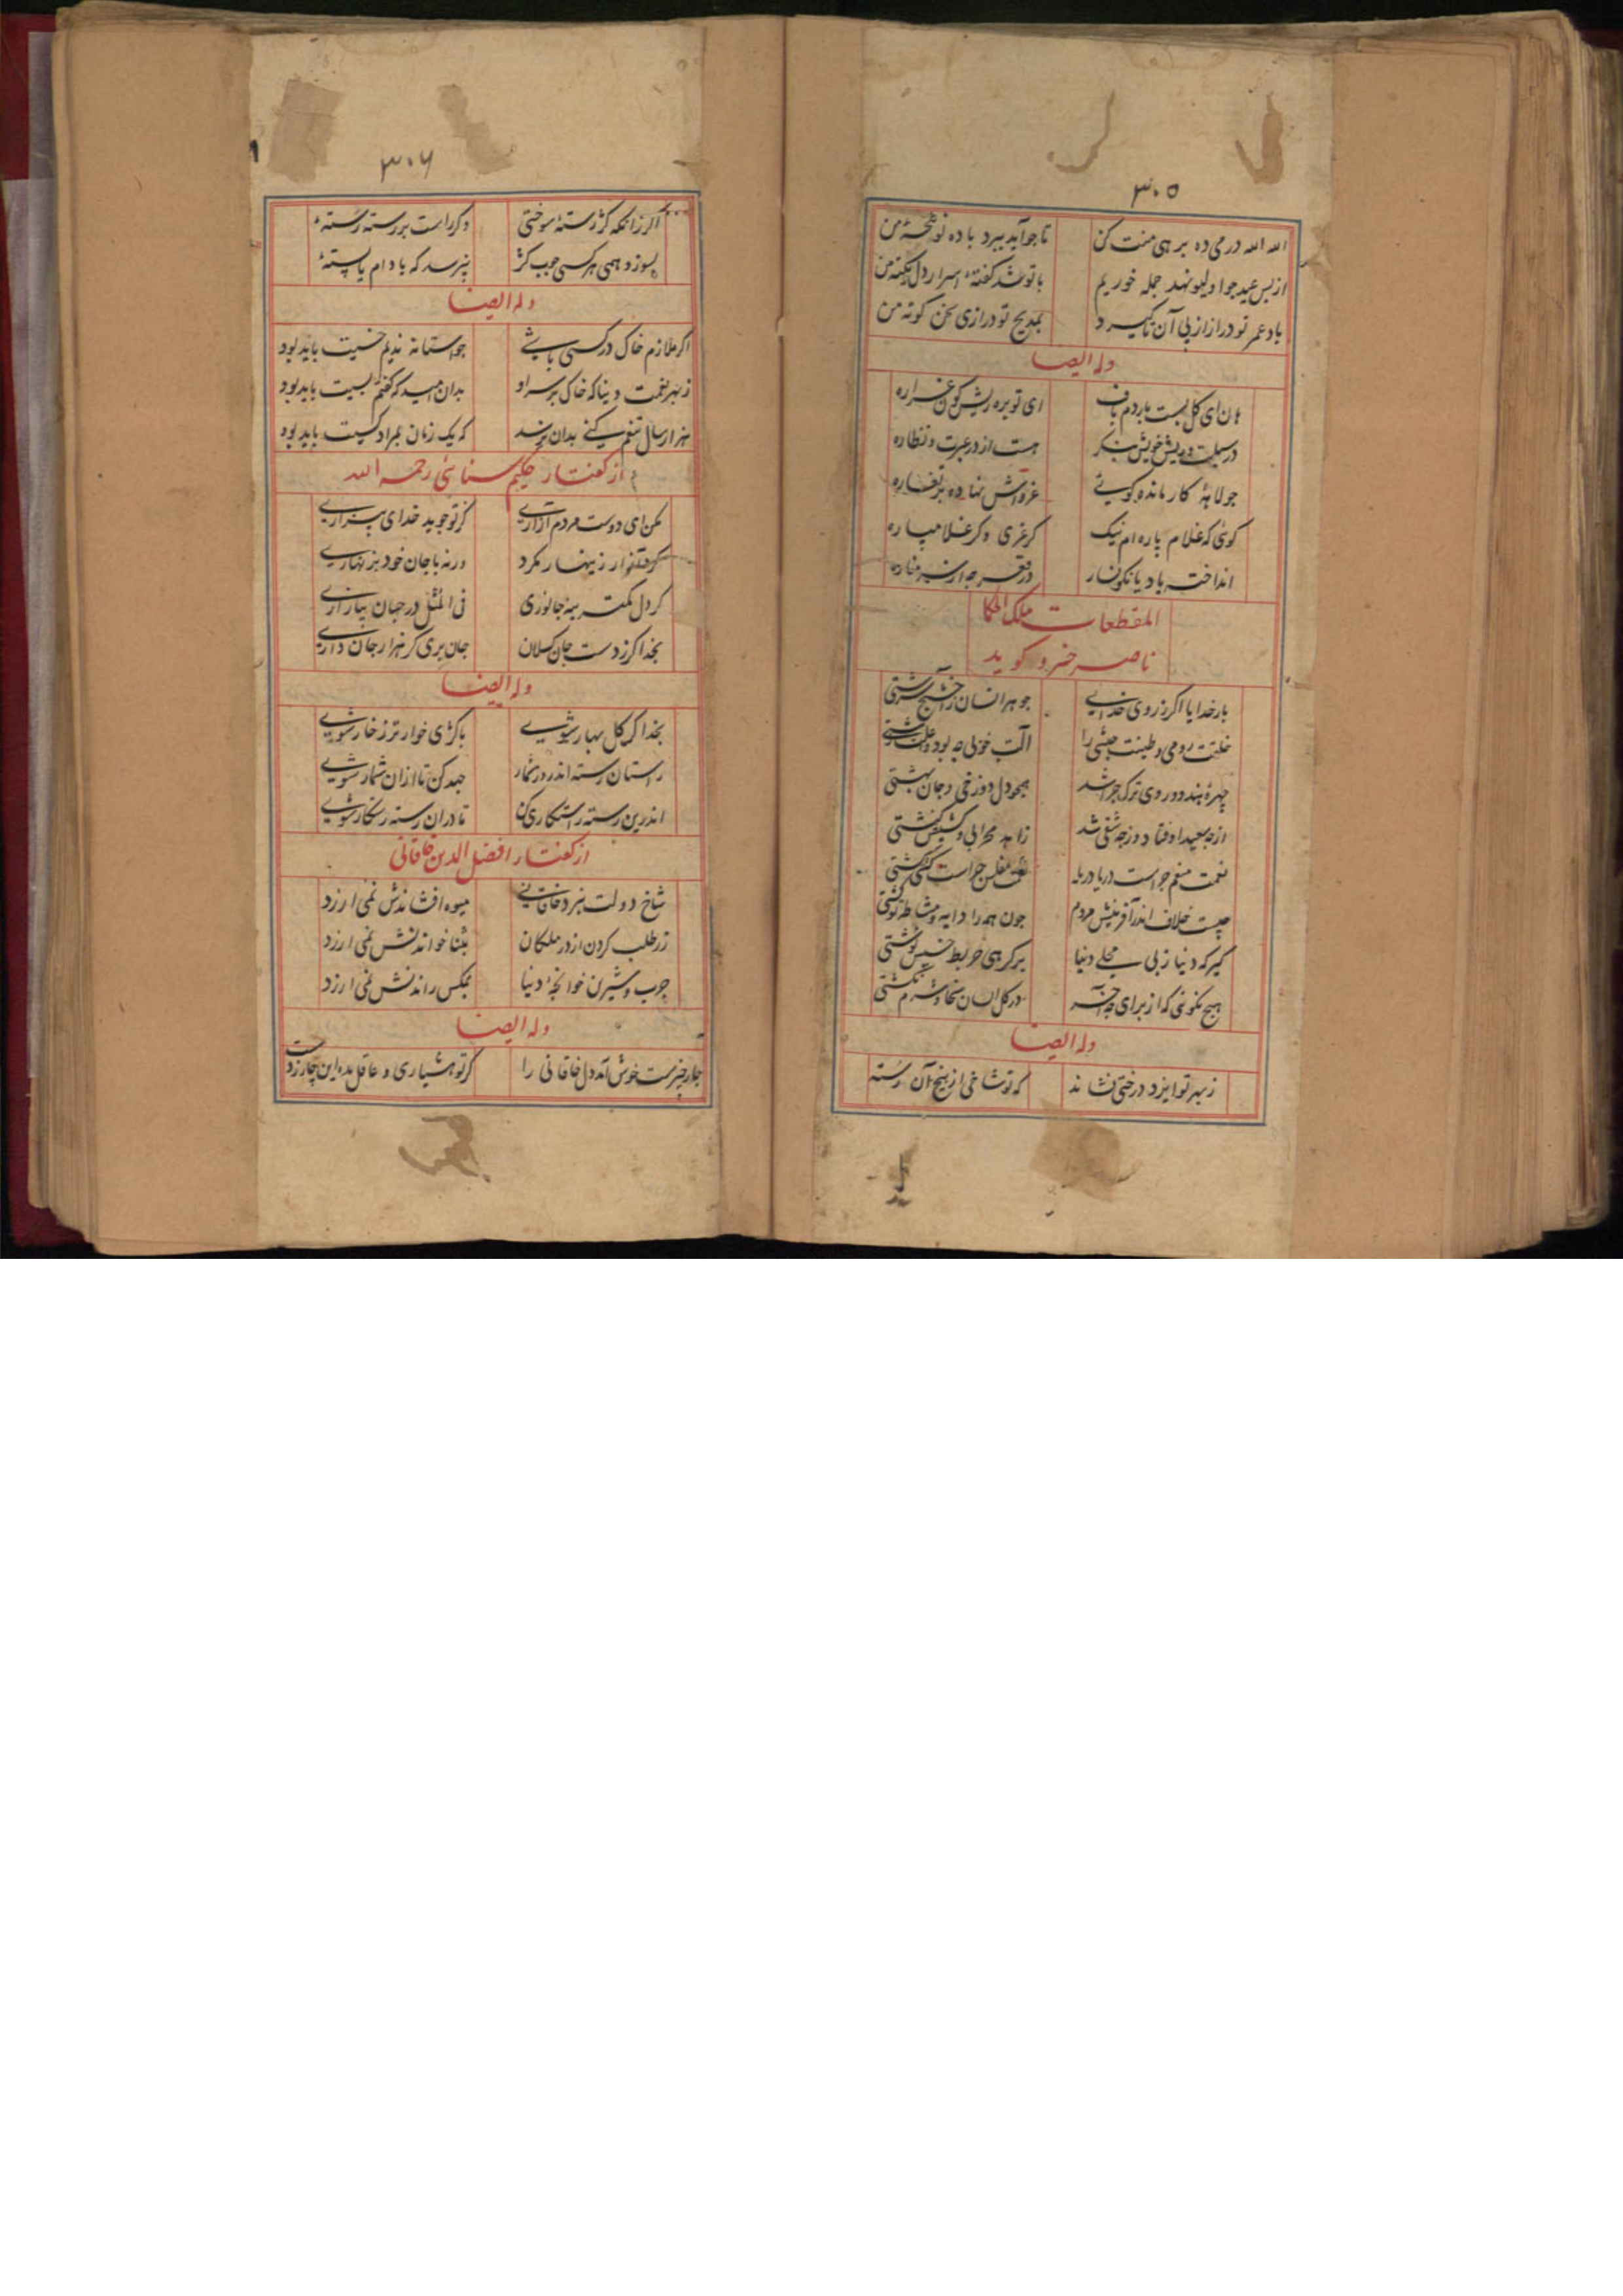 ۳۰۵
الله الله در می ده بر هی منت کن تا جو آید ببرد باده تو شحنهٔ من
از پس عید جو اولیو نهد جمله خوریم با تو شد گفته اسرار دل من
باد عمر تو دراز از پی آن تا گیرد بمدیح تو درازی سخن کوته من
وله ایضا
هان ای کل بست باردم باف ای توبره ریش کون غراره
در سبلت و ریش خویش بنگر هست از در عبرت و نظاره
جولاهۀ کار مانده گویی غروَش نهاده بر تغاره
گوئی که غلام باره ام نیک گر غری و گر غلامباره
انداخت باد بانگونسار در قعر جه از سر مناره
المقطعات ملک الحکما
ناصر خسرو گوید
بار خدایا اگر ز روی خدایی جوهر انسان را جمیل سرشتی
خلقت رومی و طینت حبشی را آلت خوبی جه بود و علت زشتی
چهرۀ هندو و روی ترک چرا شد همچو دل دوزخی و جان بهشتی
از چه سعید اوفتاد و ز چه شقی شد زاهد محرابی و کشیش کنشتی
نعمت منعم جراست دریا دریا محنت مفلس جراست کشتی کشتی
چیست خلاف اندر آفرینش مردم جون همه را دایه و مشاطه تو گشتی
گیرکه دنیا ز بی محلی دنیا بر گرهی خربط خسیس نوشتی
هیچ نگوئی که از برای چه آخر در گل ایشان سخا و شرم نکشتی
وله ایضا
ز بهر تو ایزد درختی نشاند که تو شاخی از بیخ آن رسته
۳۰۶
اگر زانکه کژ رسته سوختی و گر راست بر رسته رستهٔ
بسوزد همی هر کسی چوب کژ نپرسد که بادام یا پستهٔ
وله ایضا
اگر ملازم خاک در کسی باشی جو آستانه ندیم خسیت باید بود
ز بهر نعمت دنیا که خاک بر سر او بدان امید که گفتم بسیت باید بود
هزار سال تنعم کنی بدان نرسد که یک زمان بمراد کسیت باید بود
از گفتار حکیم سنائی رحمه الله
مکن ای دوست مردم آزاری کز تو جوید خدای بیزاری
زینهار مگرد ورنه با جان خود بزنهاری
گر دل یکتن بیازاری فی المثل در جهان
بخدا گر ز دست جان گسلان جان بری گر هزار جان داری
وله ایضا
بخدا گر گل بهار شوی با کژی خوارتر ز خار شوی
راستان رسته اند روز شمار جهد کن تا از آن شمار شوی
اندرین رسته رستگاری کن تا در آن رسته رستگار شوی
از گفتار افضل الدین خاقانی
شاخ دولت بنزد خاقانی میوه افشاندنش نمی ارزد
زر طلب کردن از در ملکان بثنا خواندنش نمی ارزد
چرب و شیرین خوانچۀ دنیا بمگس راندنش نمی ارزد
وله ایضا
چار چیزست خوش آمد دل خاقانی را گر تو هشیاری و عاقل بده این چار ز دست